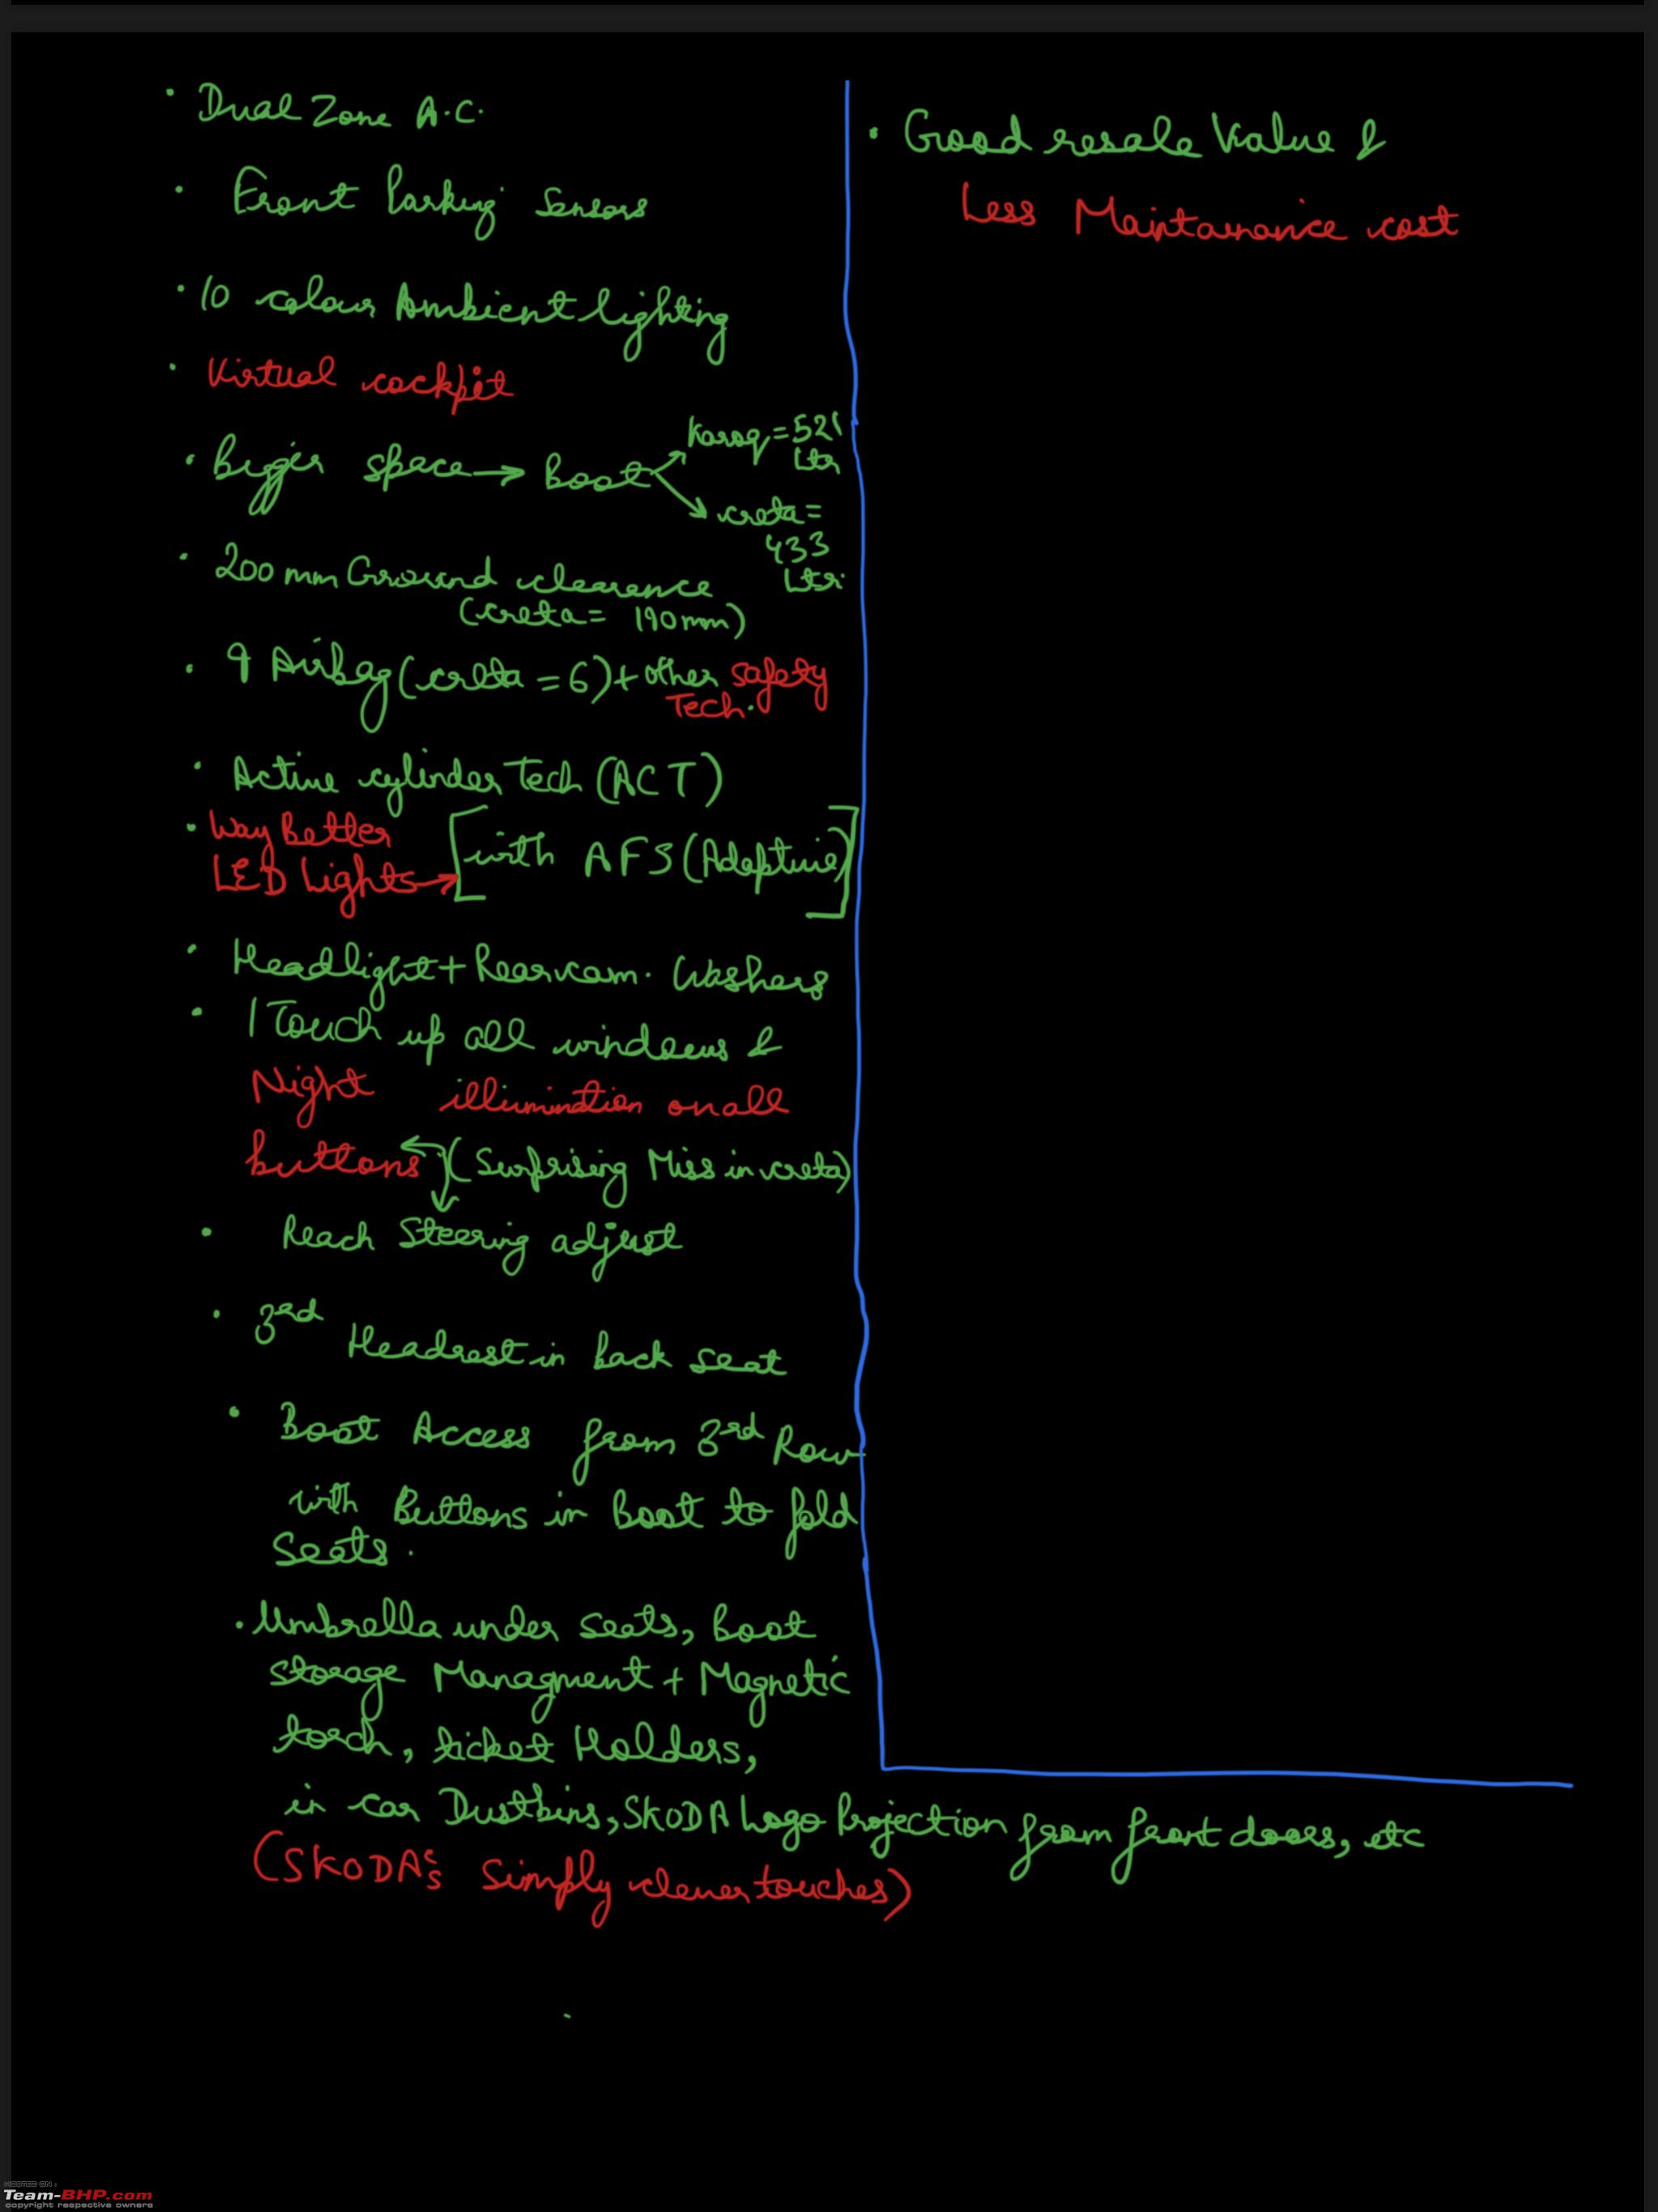 • Dual Zone A.C.
• Front Parking Sensors
• 10 colour Ambient lighting
• Virtual cockpit
• Bigger space → Boot
Karoq = 521
Ltr
creta =
433
Ltr.
• 200 mm Ground clearence
(creta = 190 mm)
• 9 Airbag (creta = 6) + other safety
Tech.
• Active cylinder Tech (ACT)
• Way Better
LED Lights → [with AFS (Adaptive)]
• Headlight + Rearcam. Washers
• 1 Touch up all windows &
Night illumination on all
buttons (Surprising Miss in creta)
• Reach Steering adjust
• 3rd Headrest in back seat
• Boot Access from 3rd Row
with Buttons in Boot to fold
Seats.
• Umbrella under seats, Boot
storage Managment + Magnetic
torch, ticket Holders,
in car Dustbins, SKODA Logo Projection from front doors, etc
(SKODA's simply clever touches)
• Good resale Value &
Less Maintainance cost
Team-BHP.com
copyright respective owners